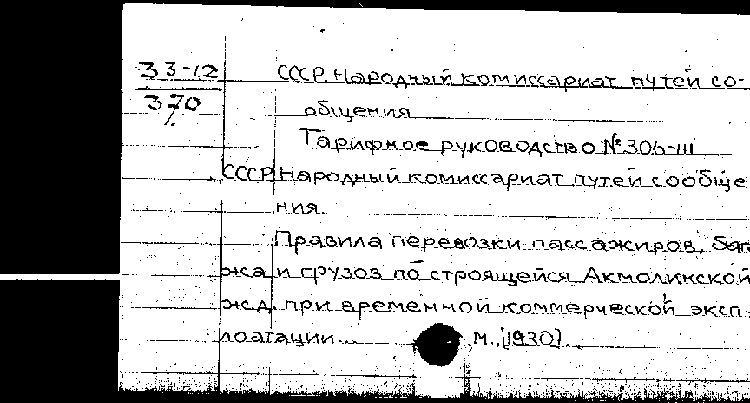 33-12
370
СССР. Народный комиссариат путей со-
общения
Тарифное руководство № 306-III
СССР. Народный комиссариат путей сообще
ния.
Правила перевозки пассажиров, бага
жа и грузов по строящейся Акмолинской
ж.д. при временной коммерческой эксп
лоатации... М., [1930].